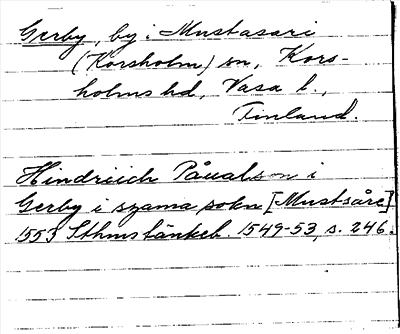 Gerby, by i Mustasari
(Korsholm) sn, Kors-
holms hd, Vasa l.,
Finland.
Hindriich Påualson i
Gerby i szama sokn [Mustsåra]
1553 Sthms tänkeb. 1549-53, s. 246.